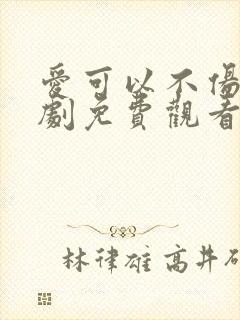 愛可以不傷
劇免費觀看
林律雄 高井研